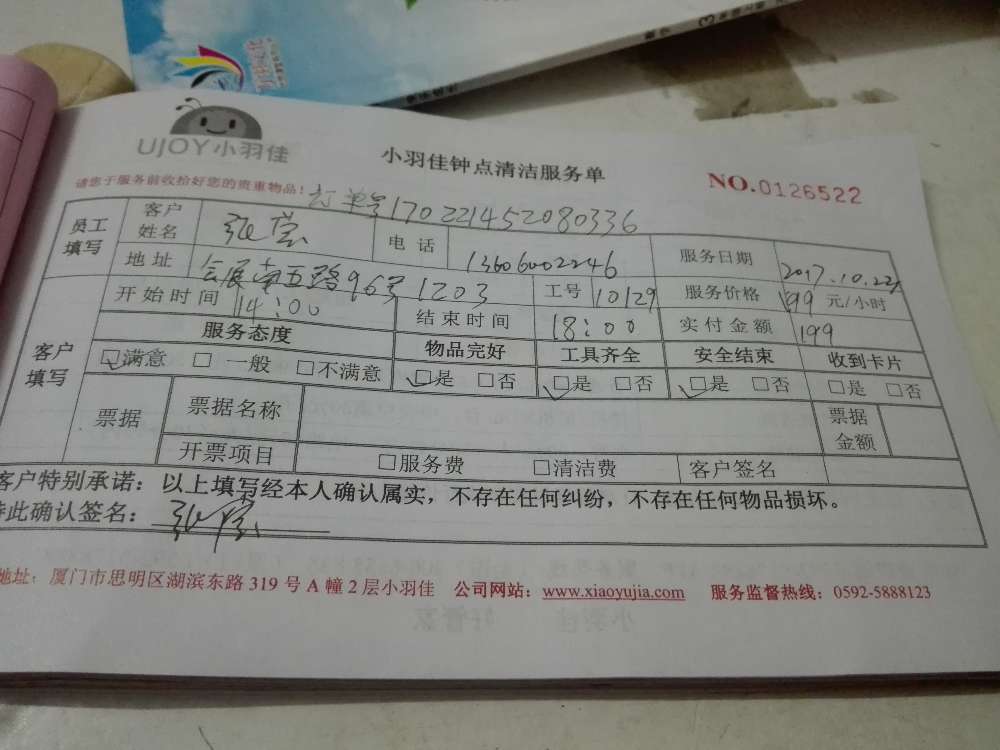 UJOY小羽佳
小羽佳钟点清洁服务单
NO.0126522
请您于服务前收拾好您的贵重物品！
订单号170221452080336
员工填写 客户姓名 电话 13606002246 服务日期 2017.10.22
地址 会展南五路96号1203 工号 10129 服务价格 199 元/小时
客户填写 开始时间 14:00 结束时间 18:00 实付金额 199
服务态度 物品完好 工具齐全 安全结束 收到卡片
☑满意 □一般 □不满意 ☑是 □否 ☑是 □否 ☑是 □否 □是 □否
票据 票据名称 票据金额
开票项目 □服务费 □清洁费 客户签名
客户特别承诺：以上填写经本人确认属实，不存在任何纠纷，不存在任何物品损坏。
特此确认签名：
地址：厦门市思明区湖滨东路 319 号 A 幢 2 层小羽佳 公司网站：www.xiaoyujia.com 服务监督热线：0592-5888123